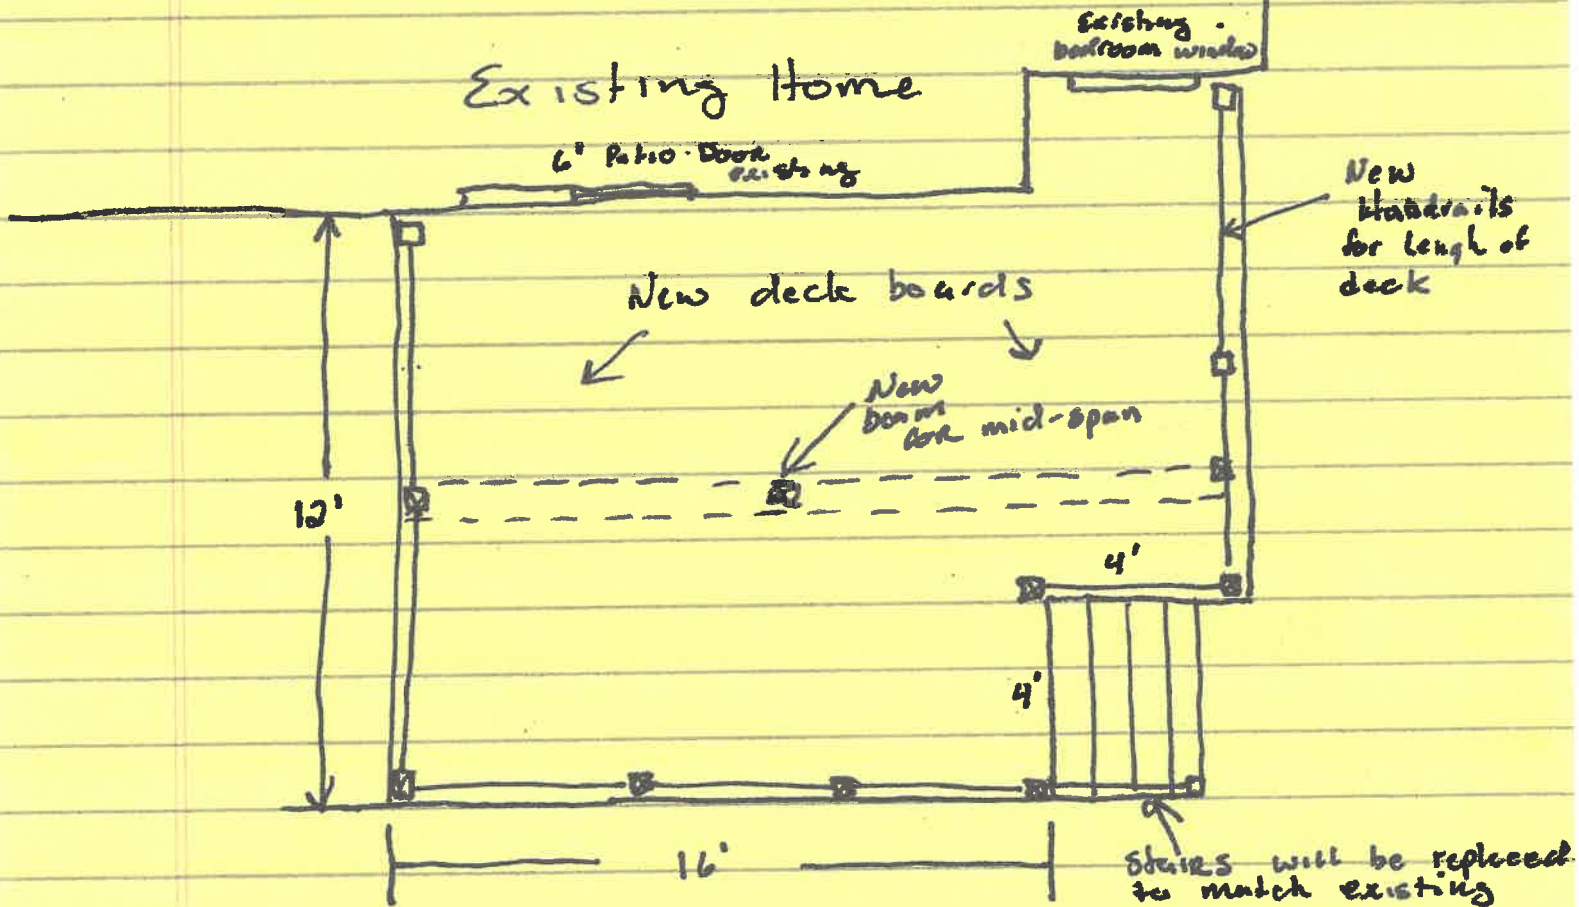 Existing
bedroom window
Existing Home
6' Patio Door
existing
New
Handrails
for lengh of
deck
New deck boards
New
beam
for mid-span
12'
4'
4'
16'
Stairs will be replaced
to match existing